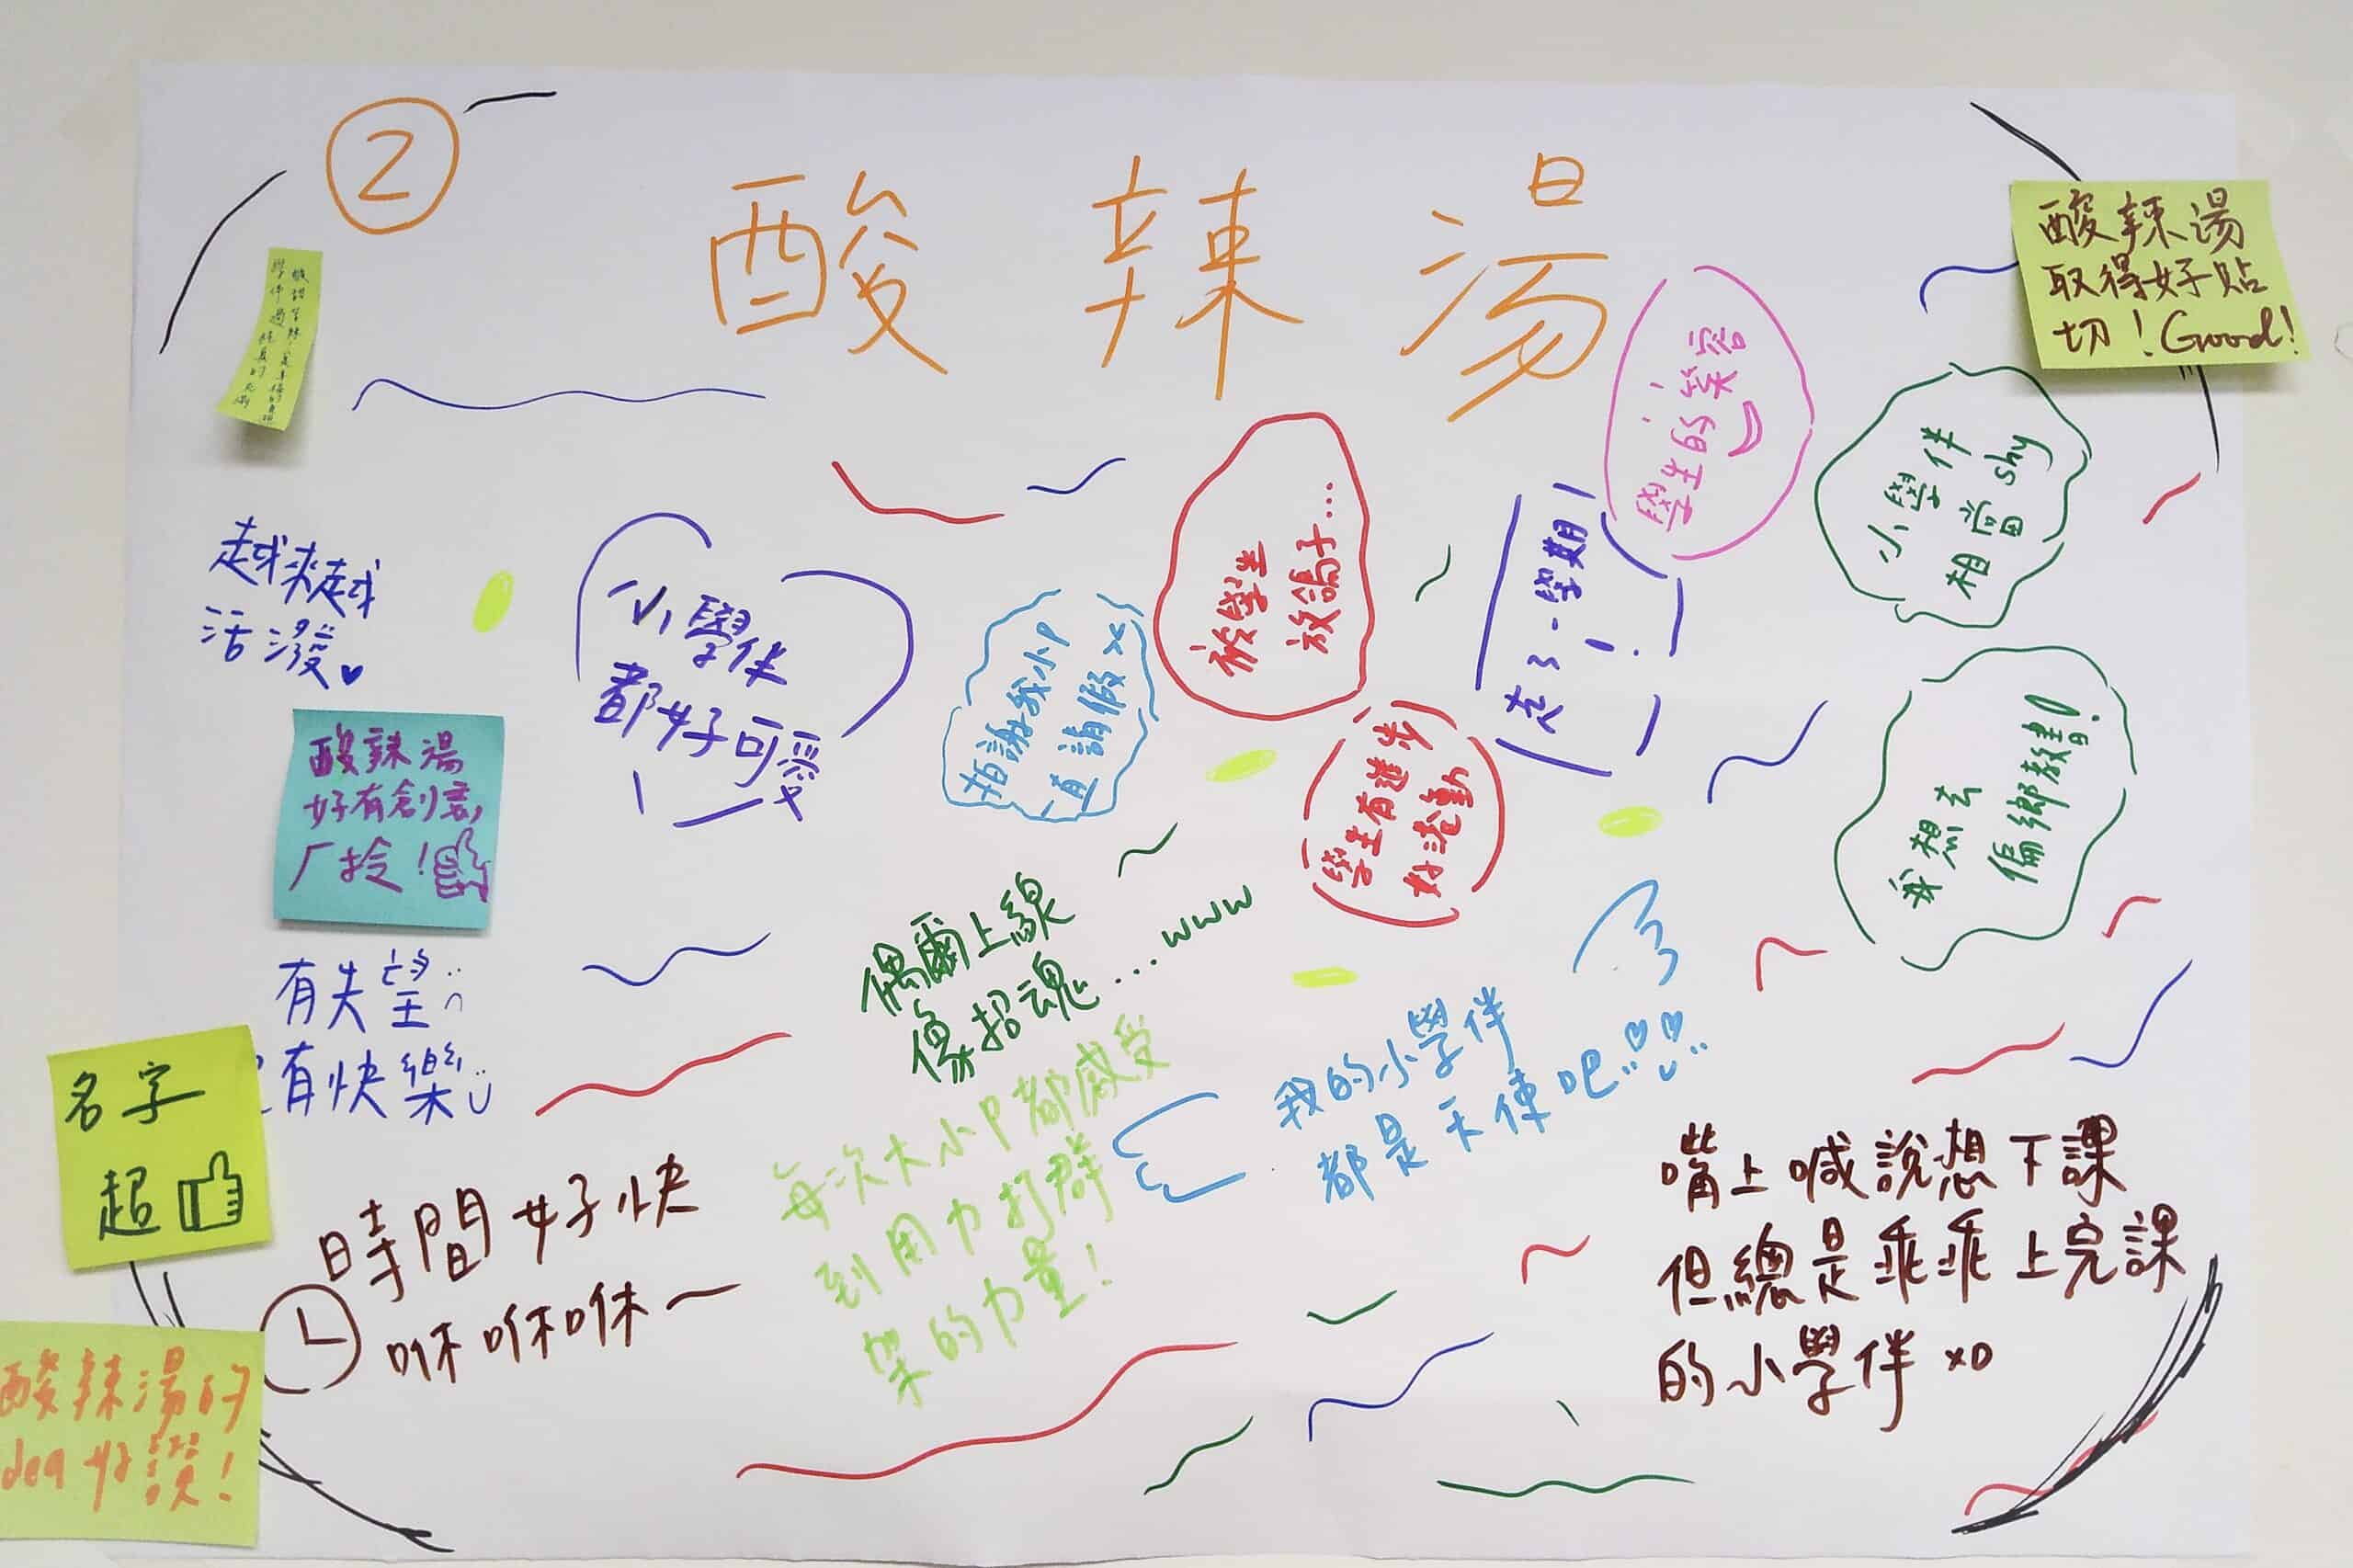 2
酸辣湯
酸辣湯
取得好貼
切！Good!
學生的笑容
小學伴
相當shy
被學生
放鴿子...
走了一學期！
越來越
活潑
小學伴
都好可愛
拍謝我小P
一直請假xx
學生有進步
好感動
我想去
偏鄉教書！
酸辣湯
好有創意，
厂拎！
偶爾上線
像招魂...www
有失望
有快樂
名字
超
每次大小P都感受
到用力打群
架的力量！
我的小學伴
都是天使吧
時間好快
咻咻咻～
嘴上喊說想下課
但總是乖乖上完課
的小學伴xD
酸辣湯的
dea好讚！